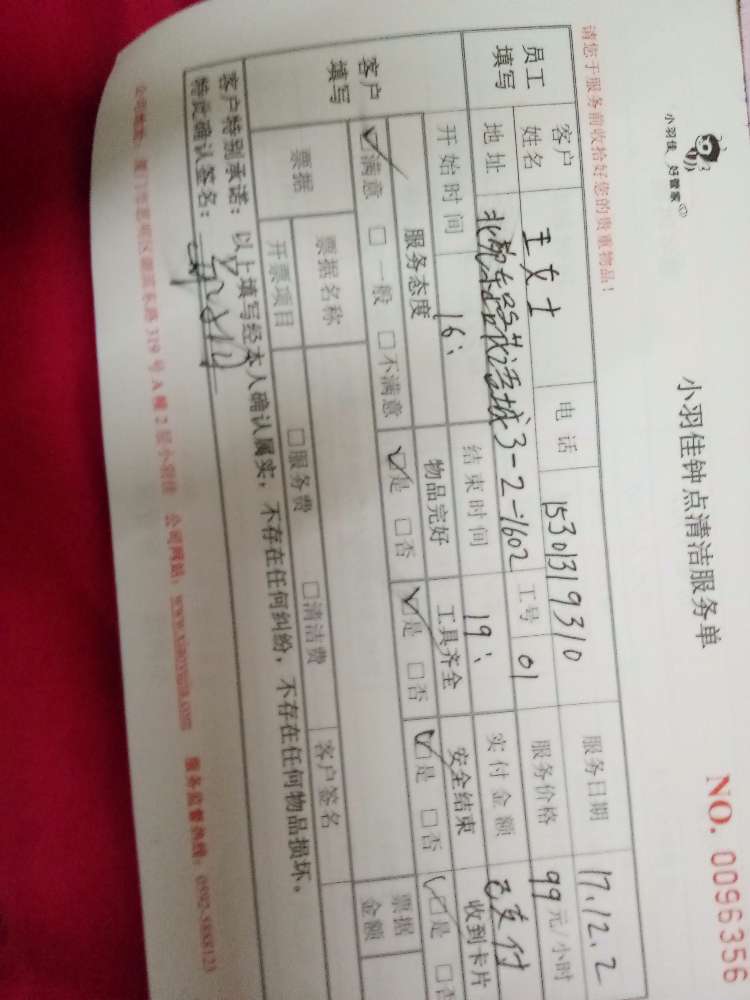 小羽佳 好管家
小羽佳钟点清洁服务单
NO. 0096356
请您于服务前收拾好您的贵重物品！
员工填写
客户姓名 王女士 电话 15301319310 服务日期 17.12.2
地址 3-2-1602 工号 01 服务价格 99元/小时
开始时间 16: 结束时间 19: 实付金额 已支付
客户填写
服务态度 物品完好 工具齐全 安全结束 收到卡片
☑满意 □一般 □不满意 ☑是 □否 ☑是 □否 ☑是 □否 ☑是 □否
票据 票据名称 客户签名 票据金额
开票项目 □服务费 □清洁费
客户特别承诺：以上填写经本人确认属实，不存在任何纠纷，不存在任何物品损坏。
特此确认签名：
319号A幢2层小羽佳 公司网站：www.xiaoyujia.com 服务监督热线：0592-5888123